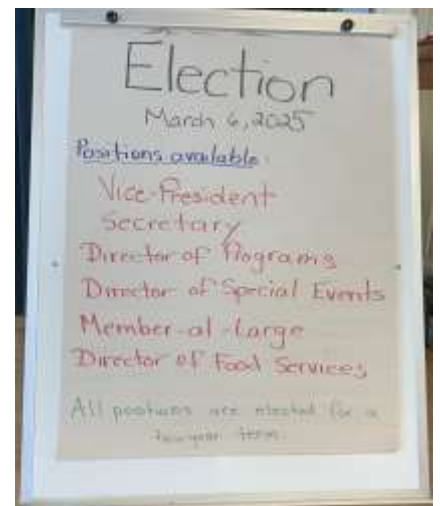 Election
March 6, 2025
Positions available:
Vice-President
Secretary
Director of Programs
Director of Special Events
Member-at-Large
Director of Food Services
All positions are elected for a
two-year term.